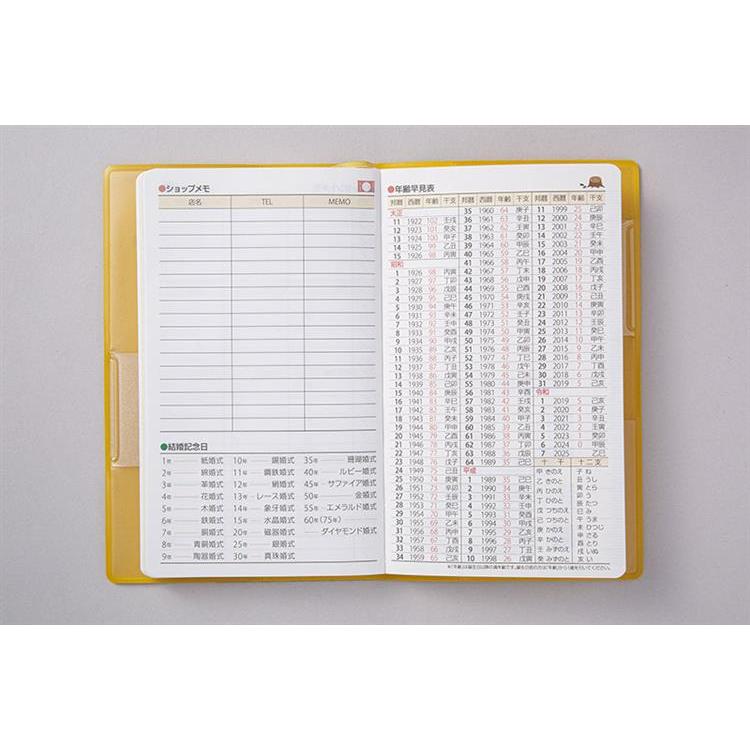 ●ショップメモ
店名 TEL MEMO
●結婚記念日
1年 紙婚式
2年 綿婚式
3年 革婚式
4年 花婚式
5年 木婚式
6年 鉄婚式
7年 銅婚式
8年 青銅婚式
9年 陶器婚式
10年 錫婚式
11年 鋼鉄婚式
12年 絹婚式
13年 レース婚式
14年 象牙婚式
15年 水晶婚式
20年 磁器婚式
25年 銀婚式
30年 真珠婚式
35年 珊瑚婚式
40年 ルビー婚式
45年 サファイア婚式
50年 金婚式
55年 エメラルド婚式
60年(75年)
ダイヤモンド婚式
●年齢早見表
邦暦 西暦 年齢 干支
大正
11 1922 102 壬戌
12 1923 101 癸亥
13 1924 100 甲子
14 1925 99 乙丑
15 1926 98 丙寅
昭和
1 1926 98 丙寅
2 1927 97 丁卯
3 1928 96 戊辰
4 1929 95 己巳
5 1930 94 庚午
6 1931 93 辛未
7 1932 92 壬申
8 1933 91 癸酉
9 1934 90 甲戌
10 1935 89 乙亥
11 1936 88 丙子
12 1937 87 丁丑
13 1938 86 戊寅
14 1939 85 己卯
15 1940 84 庚辰
16 1941 83 辛巳
17 1942 82 壬午
18 1943 81 癸未
19 1944 80 甲申
20 1945 79 乙酉
21 1946 78 丙戌
22 1947 77 丁亥
23 1948 76 戊子
24 1949 75 己丑
25 1950 74 庚寅
26 1951 73 辛卯
27 1952 72 壬辰
28 1953 71 癸巳
29 1954 70 甲午
30 1955 69 乙未
31 1956 68 丙申
32 1957 67 丁酉
33 1958 66 戊戌
34 1959 65 己亥
邦暦 西暦 年齢 干支
35 1960 64 庚子
36 1961 63 辛丑
37 1962 62 壬寅
38 1963 61 癸卯
39 1964 60 甲辰
40 1965 59 乙巳
41 1966 58 丙午
42 1967 57 丁未
43 1968 56 戊申
44 1969 55 己酉
45 1970 54 庚戌
46 1971 53 辛亥
47 1972 52 壬子
48 1973 51 癸丑
49 1974 50 甲寅
50 1975 49 乙卯
51 1976 48 丙辰
52 1977 47 丁巳
53 1978 46 戊午
54 1979 45 己未
55 1980 44 庚申
56 1981 43 辛酉
57 1982 42 壬戌
58 1983 41 癸亥
59 1984 40 甲子
60 1985 39 乙丑
61 1986 38 丙寅
62 1987 37 丁卯
63 1988 36 戊辰
64 1989 35 己巳
平成
1 1989 35 己巳
2 1990 34 庚午
3 1991 33 辛未
4 1992 32 壬申
5 1993 31 癸酉
6 1994 30 甲戌
7 1995 29 乙亥
8 1996 28 丙子
9 1997 27 丁丑
10 1998 26 戊寅
邦暦 西暦 年齢 干支
11 1999 25 己卯
12 2000 24 庚辰
13 2001 23 辛巳
14 2002 22 壬午
15 2003 21 癸未
16 2004 20 甲申
17 2005 19 乙酉
18 2006 18 丙戌
19 2007 17 丁亥
20 2008 16 戊子
21 2009 15 己丑
22 2010 14 庚寅
23 2011 13 辛卯
24 2012 12 壬辰
25 2013 11 癸巳
26 2014 10 甲午
27 2015 9 乙未
28 2016 8 丙申
29 2017 7 丁酉
30 2018 6 戊戌
31 2019 5 己亥
令和
1 2019 5 己亥
2 2020 4 庚子
3 2021 3 辛丑
4 2022 2 壬寅
5 2023 1 癸卯
6 2024 0 甲辰
7 2025 乙巳
十干 十二支
甲 きのえ
乙 きのと
丙 ひのえ
丁 ひのと
戊 つちのえ
己 つちのと
庚 かのえ
辛 かのと
壬 みずのえ
癸 みずのと
子 ね
丑 うし
寅 とら
卯 う
辰 たつ
巳 み
午 うま
未 ひつじ
申 さる
酉 とり
戌 いぬ
亥 い